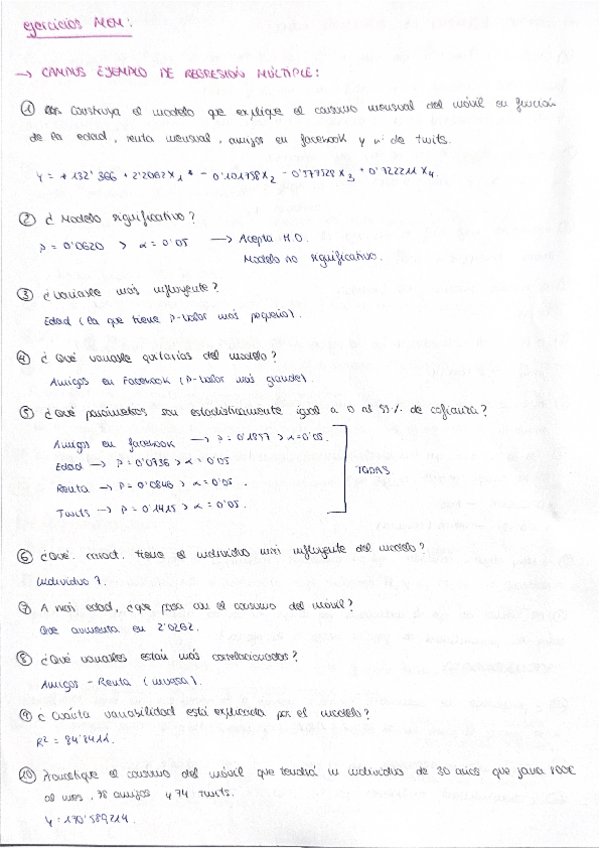 ejercicios MEM:
→ CAMPUS EJEMPLO DE REGRESIÓN MÚLTIPLE:
① Construya el modelo que explique el consumo mensual del móvil en función
de la edad, renta mensual, amigos en facebook y nº de twits.
② ¿Modelo significativo?
p = 0'0620 > α = 0'05 → Acepta H0.
Modelo no significativo.
③ ¿Variable más influyente?
Edad (la que tiene p-valor más pequeño).
④ ¿Qué variable quitarías del modelo?
Amigos en Facebook (p-valor más grande).
⑤ ¿Qué parámetros son estadísticamente igual a 0 al 95% de cofianza?
Amigos en facebook → p = 0'1897 > α=0'05.
Edad → p = 0'0736 > α = 0'05
Renta → p = 0'0846 > α = 0'05.
Twits → p = 0'1415 > α = 0'05.
TODAS
⑥ ¿Qué caract. tiene el individuo más influyente del modelo?
Individuo 7.
⑦ A más edad, ¿que pasa con el consumo del móvil?
Que aumenta en 2'0262.
⑧ ¿Qué variables están más correlacionadas?
Amigos - Renta (inversa).
⑨ ¿Cuánta variabilidad está explicada por el modelo?
R² = 84'2411.
⑩ el consumo del móvil que tendrá un individuo de 30 años que gana 800€
al mes, 78 amigos y 74 twits.
y = 170'589214.